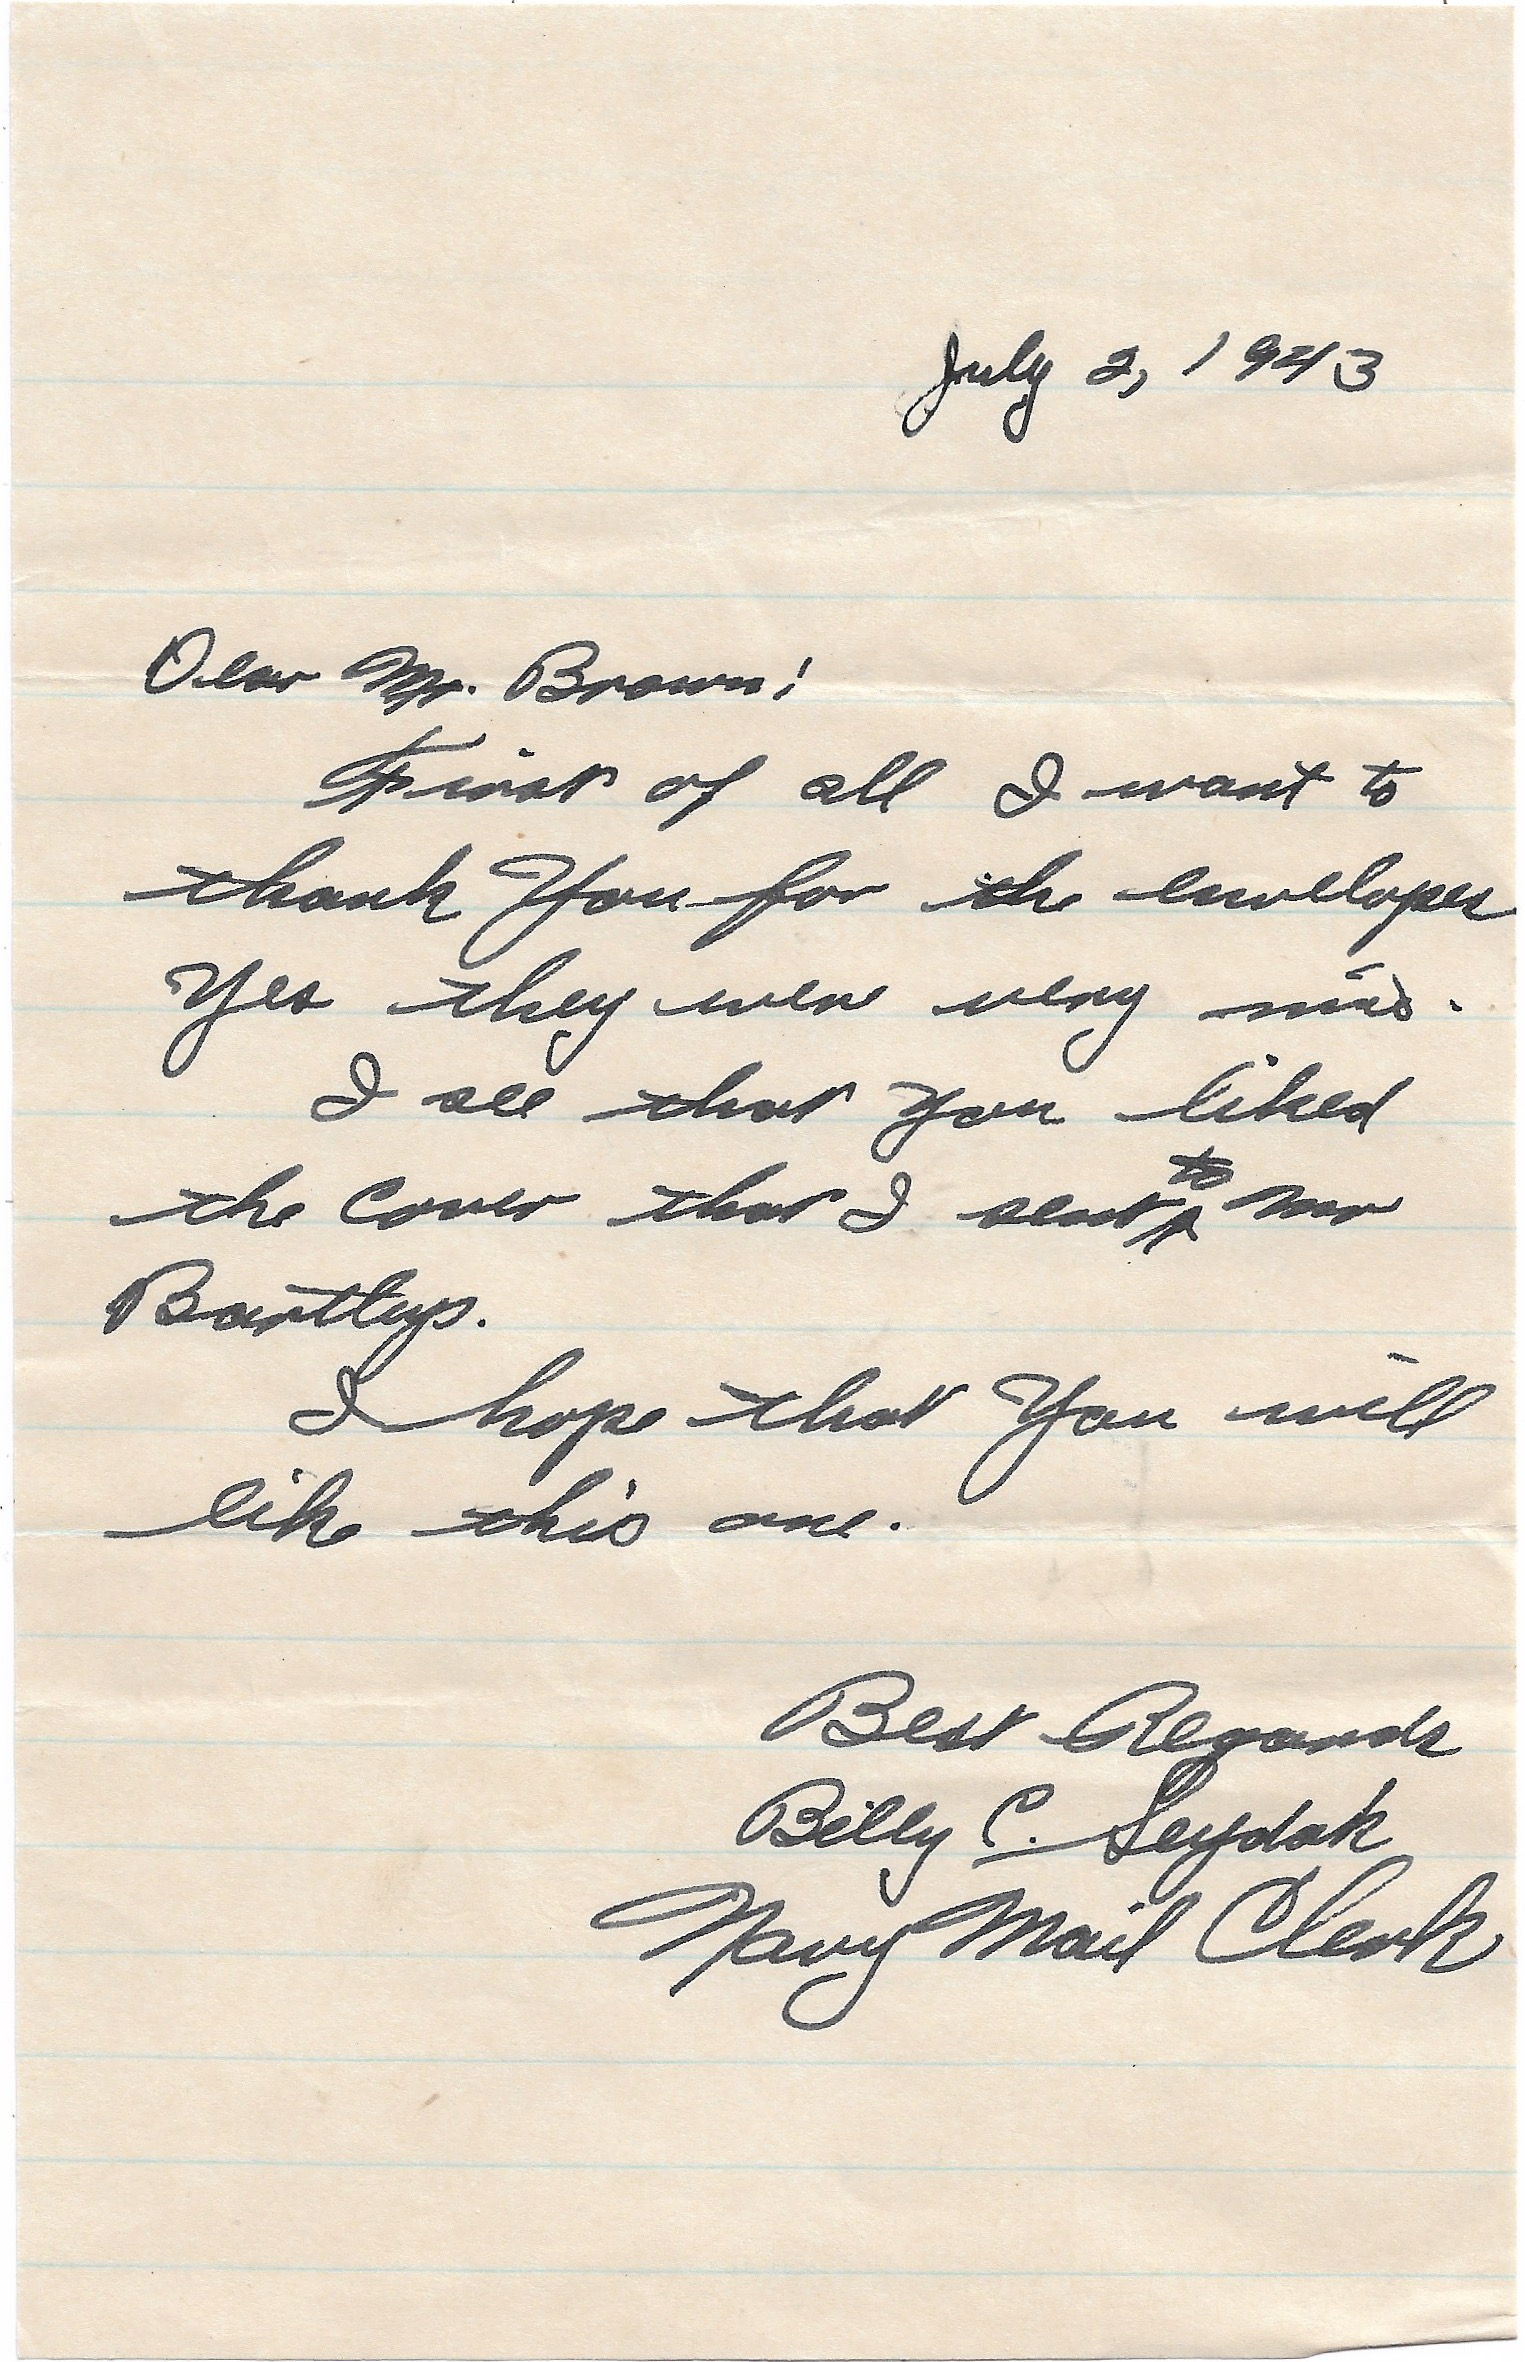 July 2, 1943
Dear Mr. Brown:
First of all I want to
thank You for the envelopes
Yes they were very nice.
I see that you liked
the cover that I sent to Mr
Bartleys.
I hope that You will
like this one.
Best Regards
Billy C. Seydak
Navy Mail Clerk